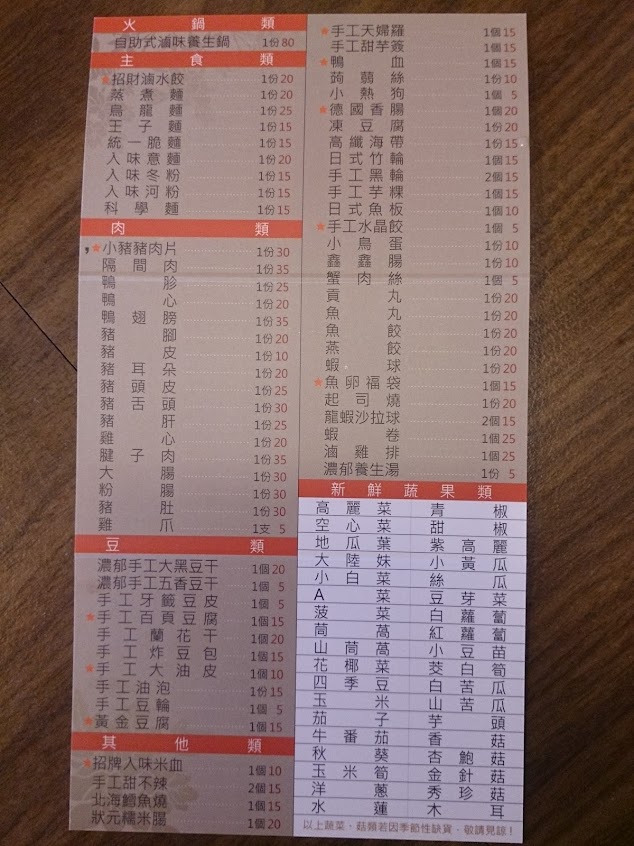 火鍋類
自助式滷味養生鍋 1份80
主食類
★招財滷水餃 1份20
蒸煮麵 1份20
烏龍麵 1份25
王子麵 1份15
統一脆麵 1份15
入味意麵 1份20
入味冬粉 1份15
入味河粉 1份15
科學麵 1份15
肉類
★小豬豬肉片 1份30
隔間肉 1份35
鴨胗 1份25
鴨心 1份20
鴨翅膀 1份35
豬腳 1份20
豬皮 1份10
豬耳朵 1份20
豬頭皮 1份25
豬舌頭 1份30
豬肝 1份25
雞心 1份20
腱子肉 1份35
大腸 1份30
粉腸 1份30
豬肚 1份30
雞爪 1支5
豆類
濃郁手工大黑豆干 1個20
濃郁手工五香豆干 1個5
手工牙籤豆皮 1個5
★手工百頁豆腐 1個15
手工蘭花干 1個20
手工炸豆包 1個15
★手工大油皮 1個10
手工油泡 1份15
手工豆輪 1個5
★黃金豆腐 1個15
其他類
★招牌入味米血 1個10
手工甜不辣 2個15
北海鱈魚燒 1個15
狀元糯米腸 1個20
★手工天婦羅 1個15
手工甜芋簽 1個15
★鴨血 1個15
蒟蒻絲 1份10
小熱狗 1個5
★德國香腸 1個20
凍豆腐 1份20
高纖海帶 1份15
日式竹輪 1個15
手工黑輪 2個15
手工芋粿 1個15
日式魚板 1個10
★手工水晶餃 1個5
小鳥蛋 1份10
鑫鑫腸 1份10
蟹肉絲 1個5
貢丸 1份20
魚丸 1份20
魚餃 1份20
燕餃 1份20
蝦球 1份20
★魚卵福袋 1個15
起司燒 1份20
龍蝦沙拉球 2個15
蝦卷 1個25
滷雞排 1個25
濃郁養生湯 1份5
新鮮蔬果類
高麗菜 青椒
空心菜 甜椒
地瓜葉 紫高麗
大陸妹 小黃瓜
小白菜 絲瓜
A菜 豆芽菜
菠菜 白蘿蔔
茼萵 紅蘿蔔
山茼萵 小豆苗
花椰菜 茭白筍
四季豆 白苦瓜
玉米 山苦瓜
茄子 芋頭
牛番茄 香菇
秋葵 杏鮑菇
玉米筍 金針菇
洋蔥 秀珍菇
水蓮 木耳
以上蔬菜、菇類若因季節性缺貨，敬請見諒！